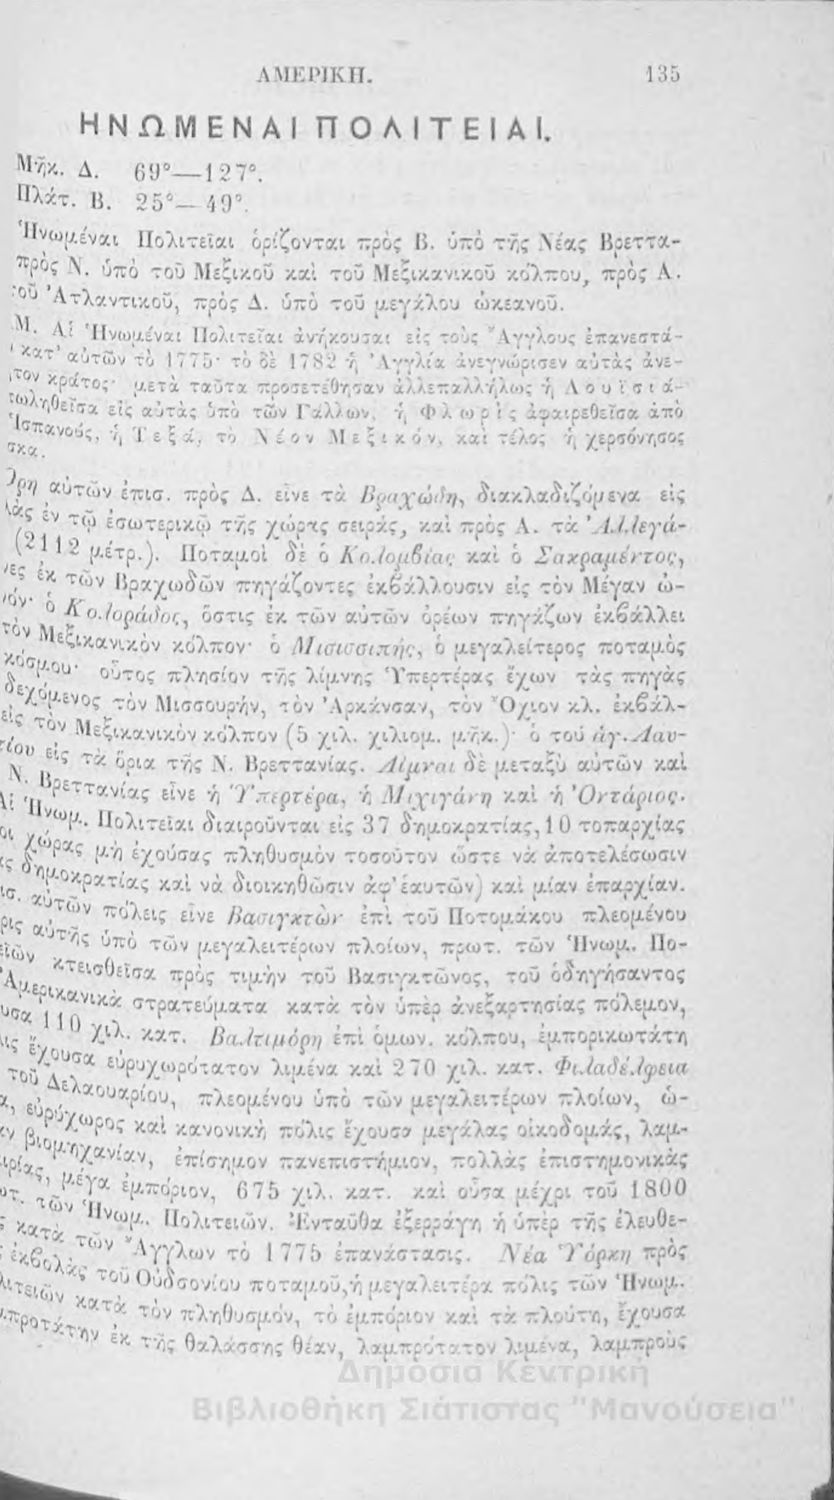 ΑΜΕΡΙΚΗ. 135
ΗΝΩΜΕΝΑΙ ΠΟΛΙΤΕΙΑΙ.
Μῆκ. Δ. 69°—127°.
Πλάτ. Β. 25°—49°.
Ἡνωμέναι Πολιτεῖαι ὁρίζονται πρὸς Β. ὑπὸ τῆς Νέας Βρεττα-
πρὸς Ν. ὑπὸ τοῦ Μεξικοῦ καὶ τοῦ Μεξικανικοῦ κόλπου, πρὸς Α.
τοῦ Ἀτλαντικοῦ, πρὸς Δ. ὑπὸ τοῦ μεγάλου ὠκεανοῦ.
Μ. Αἱ Ἡνωμέναι Πολιτεῖαι ἀνήκουσαι εἰς τοὺς Ἄγγλους ἐπανεστά-
κατ' αὐτῶν τὸ 1775· τὸ δὲ 1782 ἡ Ἀγγλία ἀνεγνώρισεν αὐτὰς ἀνε-
τον κράτος· μετὰ ταῦτα προσετέθησαν ἀλλεπαλλήλως ἡ Λουϊσιά-
πωληθεῖσα εἰς αὐτὰς ὑπὸ τῶν Γάλλων, ἡ Φλωρὶς ἀφαιρεθεῖσα ἀπὸ
Ἰσπανούς, ἡ Τεξά, τὸ Νέον Μεξικόν, καὶ τέλος ἡ χερσόνησος
σκα.
Ὄρη αὐτῶν ἐπισ. πρὸς Δ. εἶνε τὰ Βραχώδη, διακλαδιζόμενα εἰς
λὰς ἐν τῷ ἐσωτερικῷ τῆς χώρας σειράς, καὶ πρὸς Α. τὰ Ἀλλεγά-
(2112 μέτρ.). Ποταμοὶ δὲ ὁ Κολομβίας καὶ ὁ Σακραμέντος,
νες ἐκ τῶν Βραχωδῶν πηγάζοντες ἐκβάλλουσιν εἰς τὸν Μέγαν ὠ-
νόν· ὁ Κολοράδος, ὅστις ἐκ τῶν αὐτῶν ὀρέων πηγάζων ἐκβάλλει
τὸν Μεξικανικὸν κόλπον· ὁ Μισισσιπής, ὁ μεγαλείτερος ποταμὸς
κόσμου· οὗτος πλησίον τῆς λίμνης Ὑπερτέρας ἔχων τὰς πηγὰς
δεχόμενος τὸν Μισσουρήν, τὸν Ἀρκάνσαν, τὸν Ὄχιον κλ. ἐκβάλ-
εἰς τὸν Μεξικανικὸν κόλπον (5 χιλ. χιλιομ. μῆκ.)· ὁ τοῦ ἁγ. Λαυ-
τίου εἰς τὰ ὅρια τῆς Ν. Βρεττανίας. Λίμναι δὲ μεταξὺ αὐτῶν καὶ
Ν. Βρεττανίας εἶνε ἡ Ὑπερτέρα, ἡ Μιχιγάνη καὶ ἡ Ὀντάριος.
Αἱ Ἡνωμ. Πολιτεῖαι διαιροῦνται εἰς 37 δημοκρατίας, 10 τοπαρχίας
οι χώρας μὴ ἐχούσας πληθυσμὸν τοσοῦτον ὥστε νὰ ἀποτελέσωσιν
ς δημοκρατίας καὶ νὰ διοικηθῶσιν ἀφ' ἑαυτῶν) καὶ μίαν ἐπαρχίαν.
ισ. αὐτῶν πόλεις εἶνε Βασιγκτὼν ἐπὶ τοῦ Ποτομάκου πλεομένου
ρις αὐτῆς ὑπὸ τῶν μεγαλειτέρων πλοίων, πρωτ. τῶν Ἡνωμ. Πο-
ειῶν κτεισθεῖσα πρὸς τιμὴν τοῦ Βασιγκτῶνος, τοῦ ὁδηγήσαντος
Ἀμερικανικὰ στρατεύματα κατὰ τὸν ὑπὲρ ἀνεξαρτησίας πόλεμον,
υσα 110 χιλ. κατ. Βαλτιμόρη ἐπὶ ὁμων. κόλπου, ἐμπορικωτάτη
ις ἔχουσα εὐρυχωρότατον λιμένα καὶ 270 χιλ. κατ. Φιλαδέλφεια
τοῦ Δελαουαρίου, πλεομένου ὑπὸ τῶν μεγαλειτέρων πλοίων, ὡ-
α, εὐρύχωρος καὶ κανονικὴ πόλις ἔχουσα μεγάλας οἰκοδομάς, λαμ-
ν βιομηχανίαν, ἐπίσημον πανεπιστήμιον, πολλὰς ἐπιστημονικὰς
ιρίας, μέγα ἐμπόριον, 675 χιλ. κατ. καὶ οὖσα μέχρι τοῦ 1800
ωτ. τῶν Ἡνωμ. Πολιτειῶν. Ἐνταῦθα ἐξερράγη ἡ ὑπὲρ τῆς ἐλευθε-
ς κατὰ τῶν Ἄγγλων τὸ 1775 ἐπανάστασις. Νέα Ὑόρκη πρὸς
ς ἐκβολὰς τοῦ Οὐδσονίου ποταμοῦ, ἡ μεγαλειτέρα πόλις τῶν Ἡνωμ.
λιτειῶν κατὰ τὸν πληθυσμόν, τὸ ἐμπόριον καὶ τὰ πλούτη, ἔχουσα
μπροτάτην ἐκ τῆς θαλάσσης θέαν, λαμπρότατον λιμένα, λαμπροὺς
Δημόσια Κεντρική
Βιβλιοθήκη Σιάτιστας "Μανούσεια"